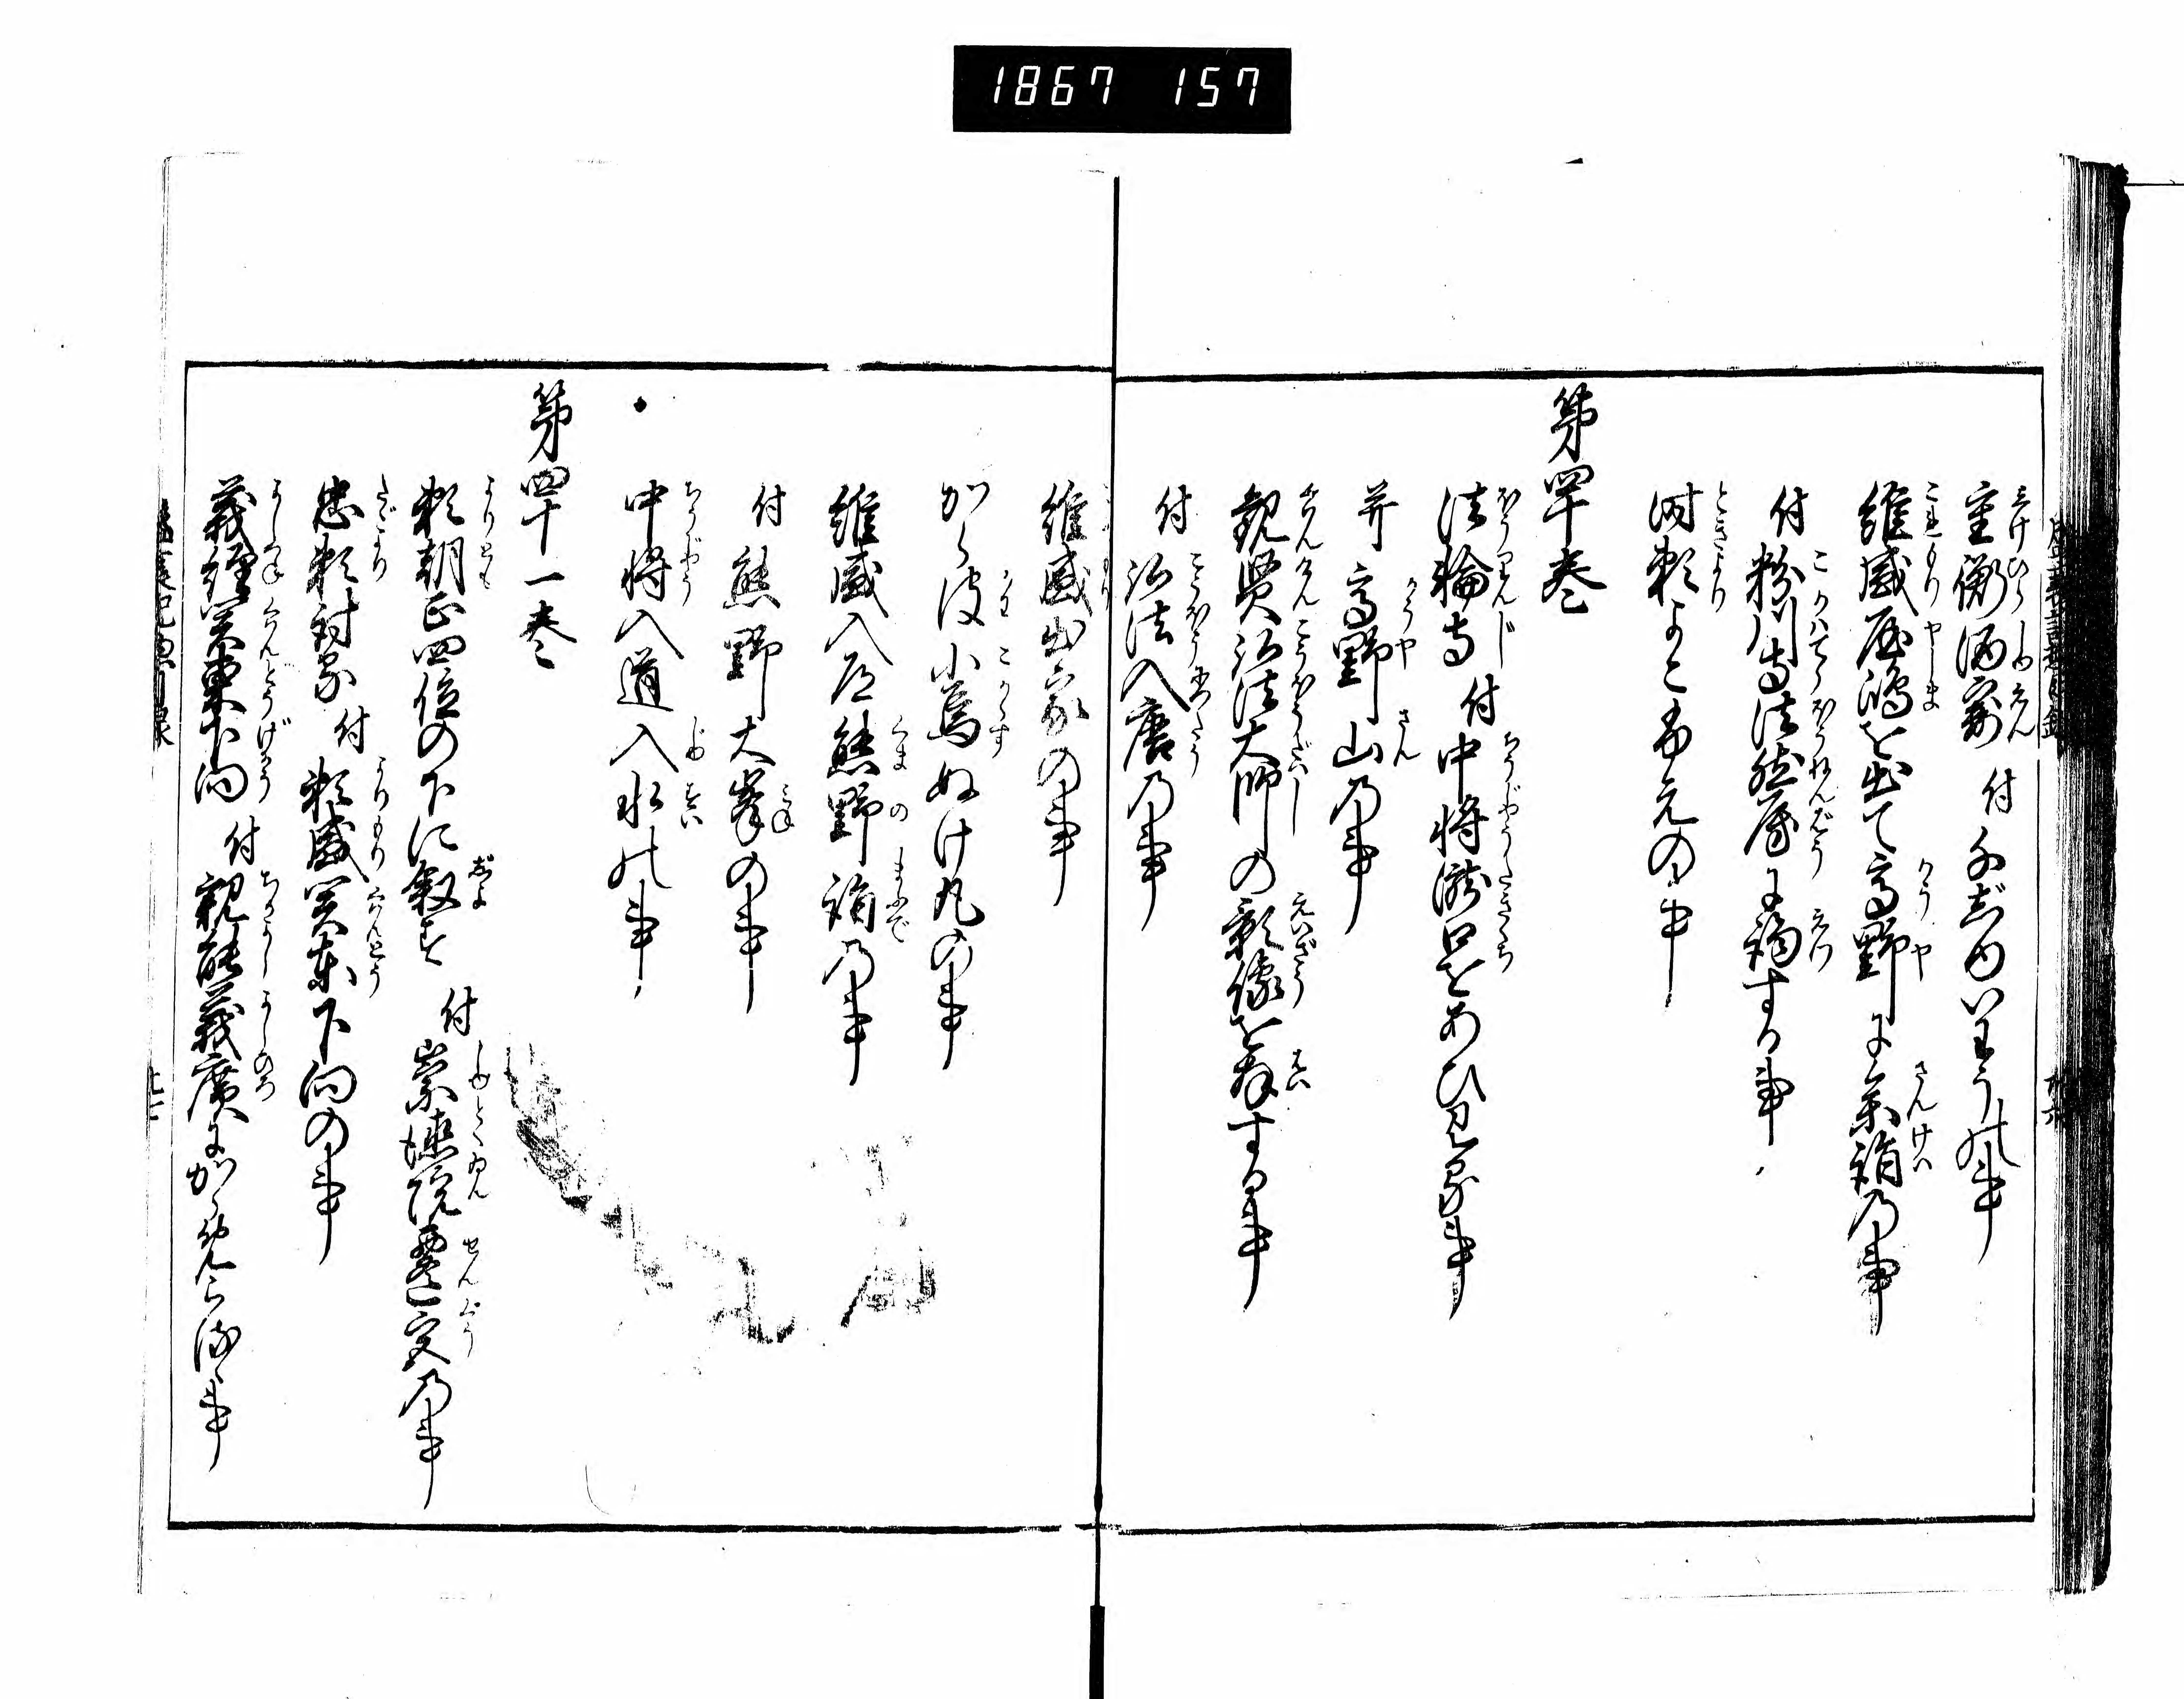 1867 157
重衡酒宴 付 千じゆいわうの事
維盛屋嶋を出て高野に参詣の事
付 粉川寺法然房に謁する事
時頼よこ笛の事
第四十巻
法輪寺 付 中将滝口をあひ見る事
并 高野山の事
観賢弘法大師の影像を拝する事
付 弘法入唐の事
維盛出家の事
から皮小烏ぬけ丸の事
維盛入道熊野詣の事
付 熊野大峯の事
中将入道入水の事
第四十一巻
頼朝正四位の下に叙す 付 崇徳院遷宮の事
忠頼討る 付 頼盛関東下向の事
義経関東下向 付 親能義広